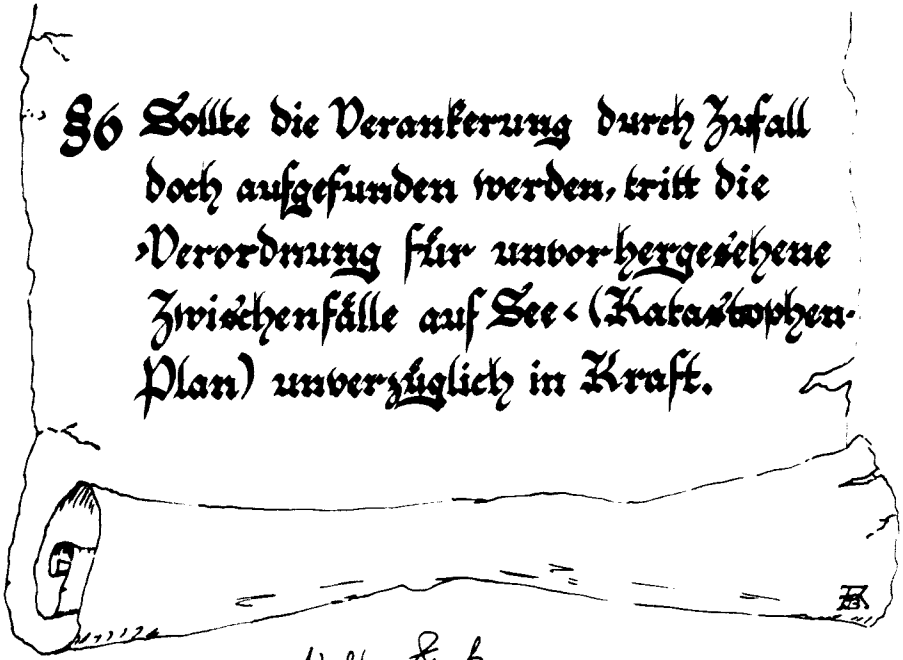 §6 Sollte die Verankerung durch Zufall
doch aufgefunden werden, tritt die
›Verordnung für unvorhergesehene
Zwischenfälle auf See‹ (Katastrophen-
Plan) unverzüglich in Kraft.